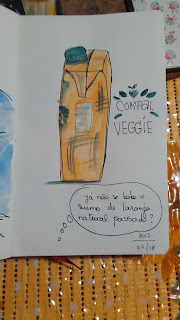 COMPAL
VEGGIE
já não se bebe o
sumo de laranja
natural passado?
2017
07/18